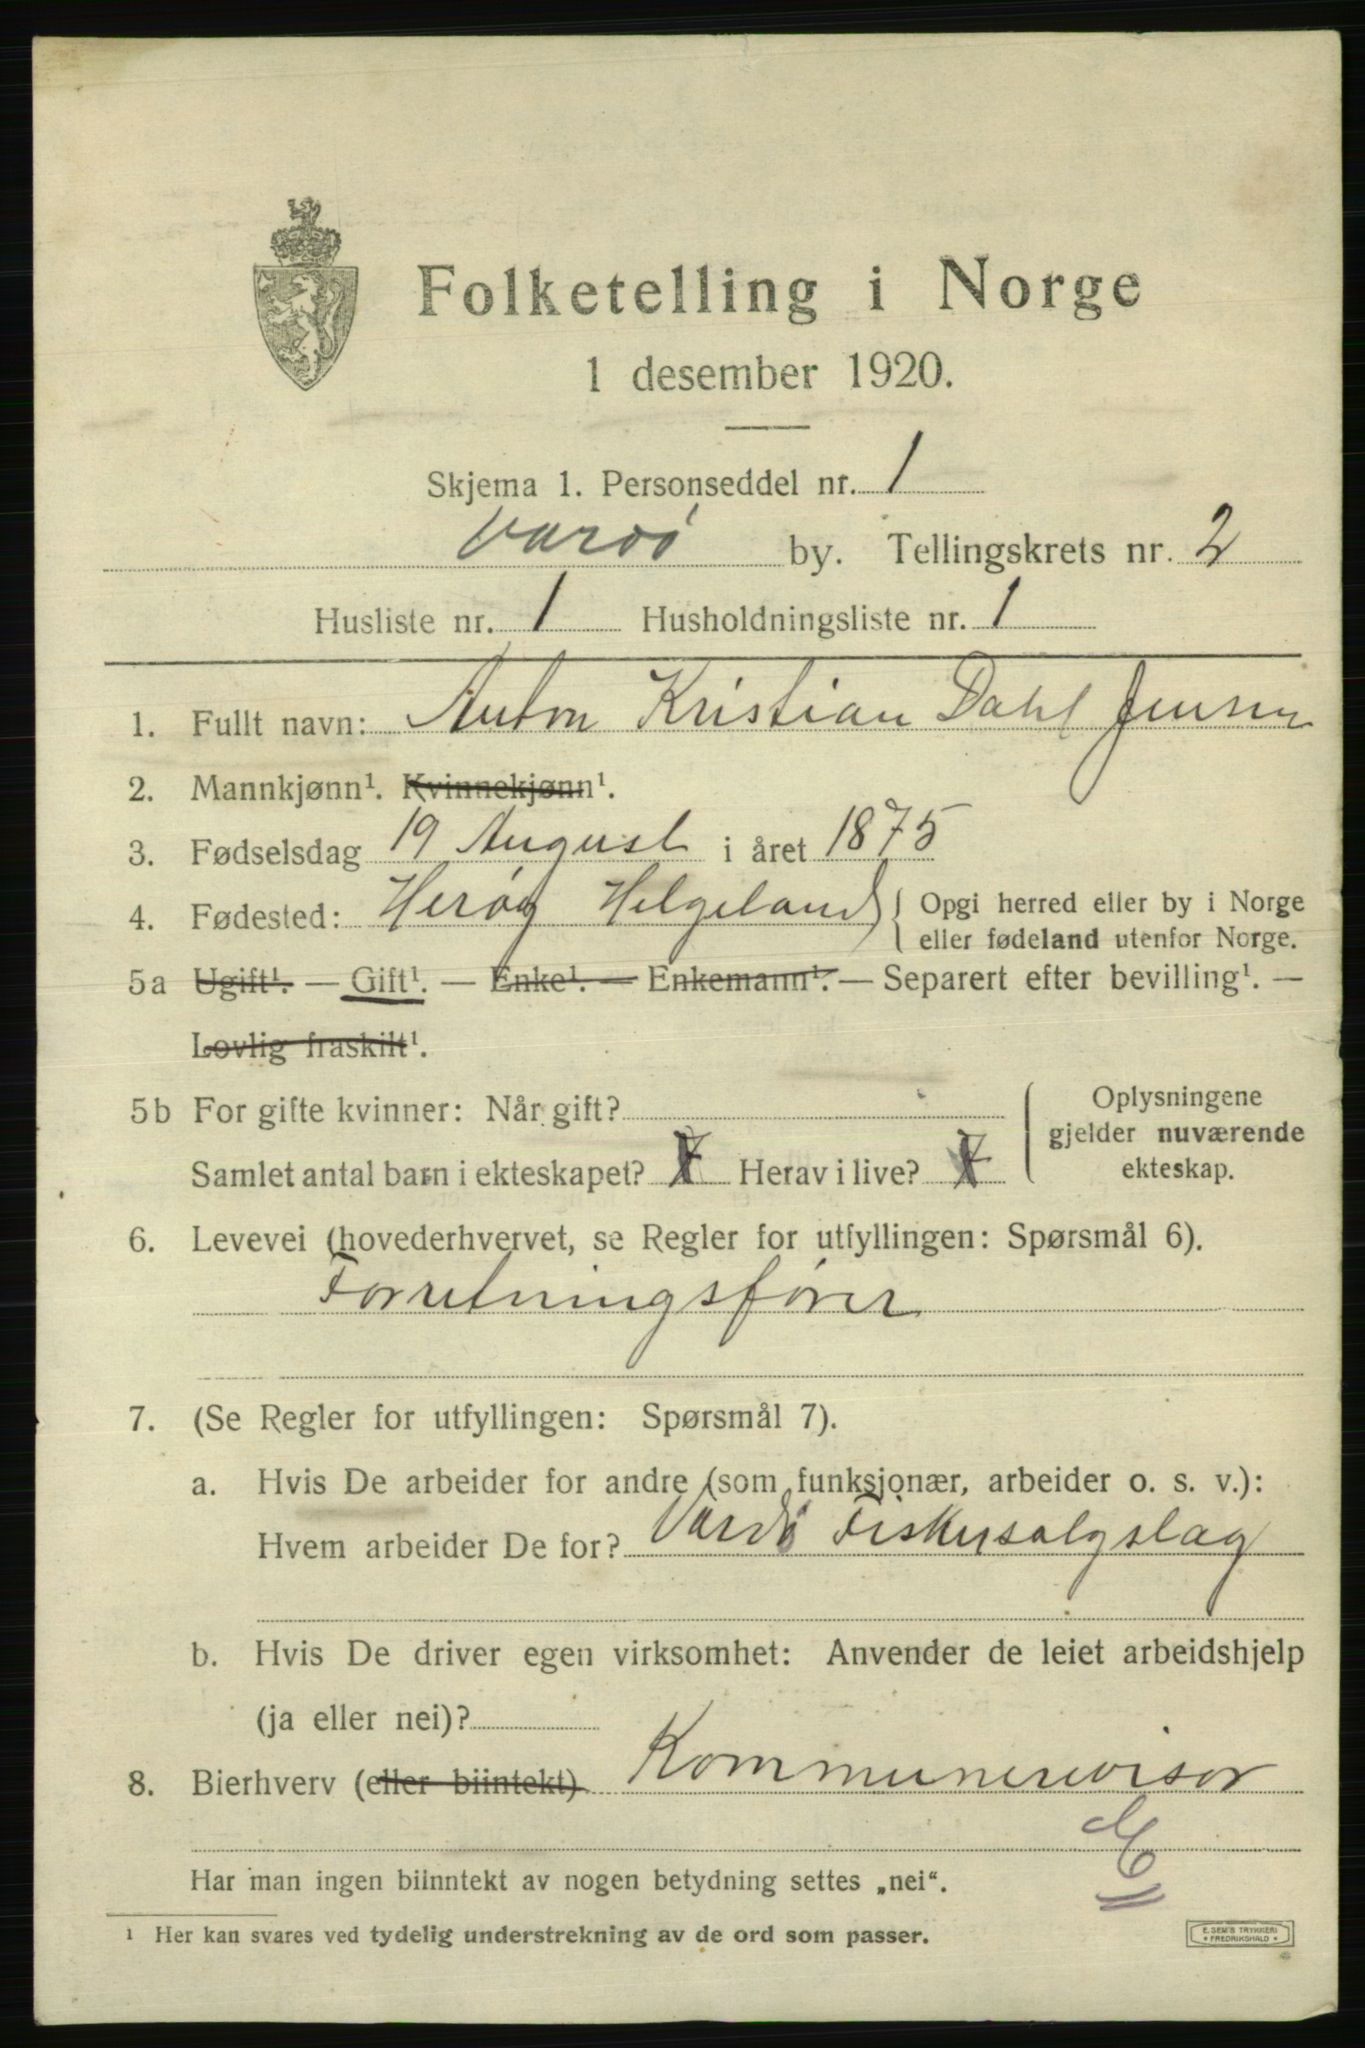 Folketelling i Norge
1 desember 1920.
Skjema 1. Personseddel nr. 1
Vardö by. Tellingskrets nr. 2
Husliste nr. 1 Husholdningsliste nr. 1
1. Fullt navn: Anton Kristian Dahl Jensen
2. Mannkjønn¹. Kvinnekjønn¹.
3. Fødselsdag 19 August i året 1875
4. Fødested: Herøy Helgeland { Opgi herred eller by i Norge
eller fødeland utenfor Norge.
5a Ugift¹. — Gift¹. — Enke¹. — Enkemann¹. — Separert efter bevilling¹. —
Lovlig fraskilt¹.
5b For gifte kvinner: Når gift?
Samlet antal barn i ekteskapet? Herav i live?
Oplysningene
gjelder nuværende
ekteskap.
6. Levevei (hovederhvervet, se Regler for utfyllingen: Spørsmål 6).
Forretningsfører
7. (Se Regler for utfyllingen: Spørsmål 7).
a. Hvis De arbeider for andre (som funksjonær, arbeider o. s. v.):
Hvem arbeider De for? Vardö Fiskersalgslag
b. Hvis De driver egen virksomhet: Anvender de leiet arbeidshjelp
(ja eller nei)?
8. Bierhverv (eller biintekt) Kommunerevisor
Har man ingen biinntekt av nogen betydning settes „nei“.
¹ Her kan svares ved tydelig understrekning av de ord som passer.
E. SEM'S TRYKKERI
* FREDRIKSHALD *